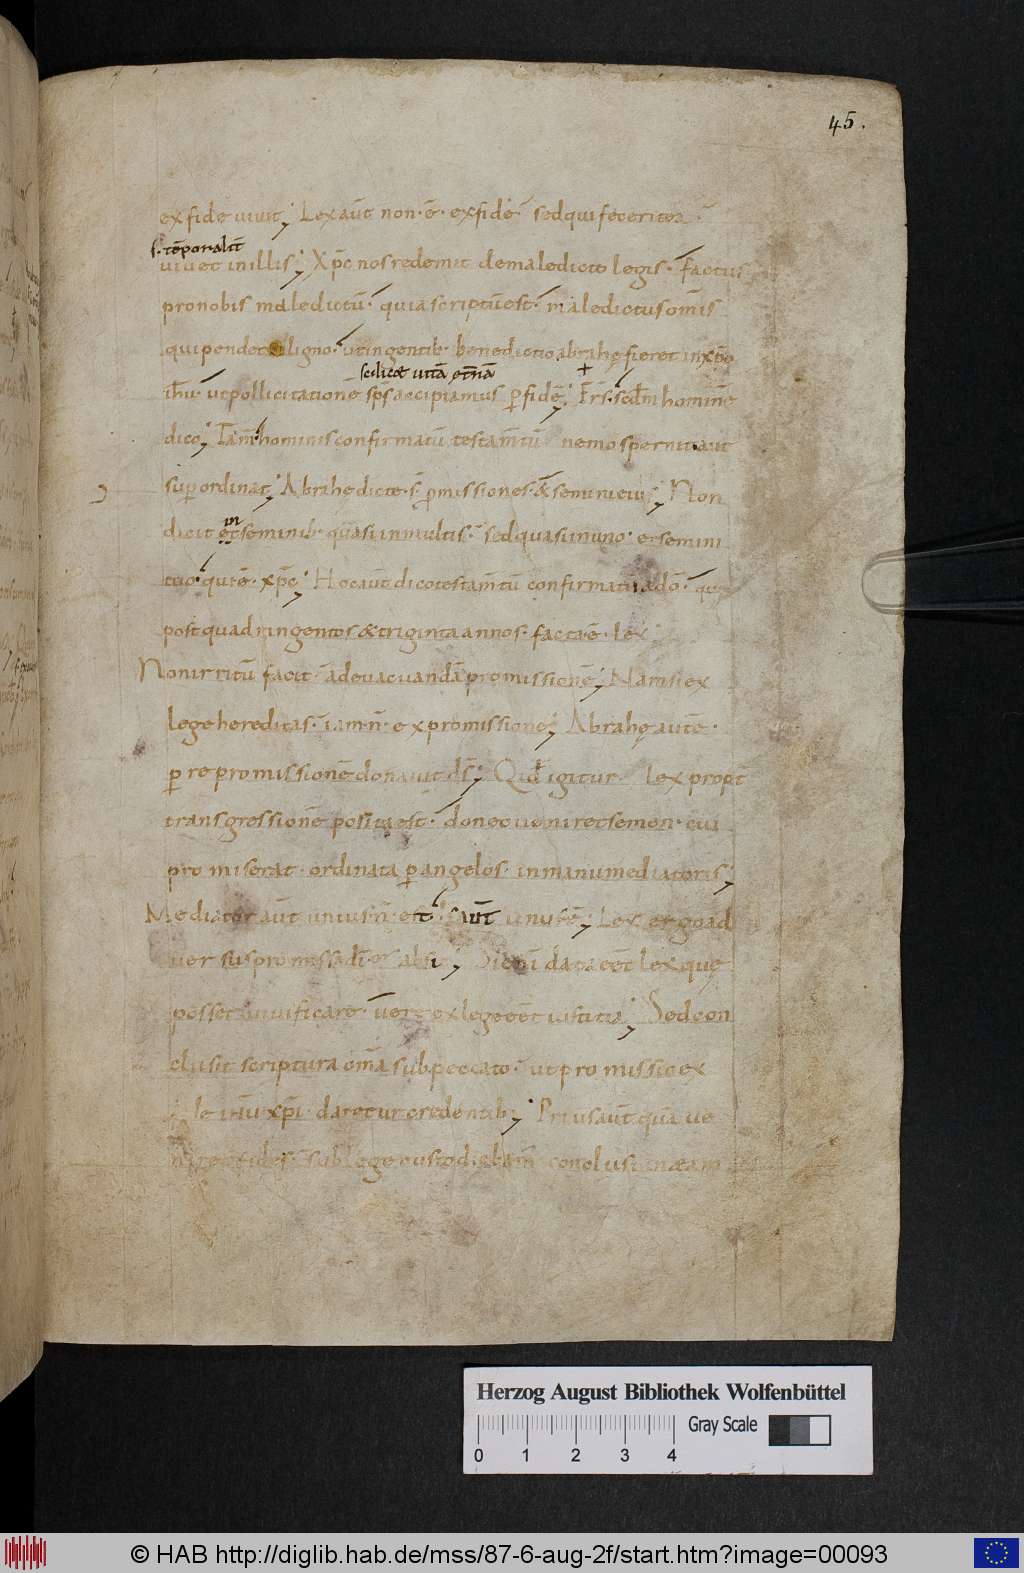 45.
ex fide vivit; Lex aūt non · ē · ex fide · sed qui fecerit ea ·
s. tēporalit̄
vivet in illis; Xp̄c nos redemit de maledicto legis · Factus
pro nobis maledictū · quia scriptū est · maledictus om̄is
qui pendet ligno · ut in gentib · benedictio abrahę fieret in xp̄o
scilicet vitā ęt̄nā
ih̄u · ut pollicitationē sp̄s accipiamus p fidē; Fr̄s · secd̄m hominē
dico; Tam̄ hominis confirmatū testam̄tū nemo spernit aut
superordinat; Abrahe dicte · s̄ · pmissiones · & semini eius; Non
in
dicit et seminib · quasi in multis · sed quasi in uno · et semini
tuo · qui ē · xp̄c; Hoc aūt dico testam̄tū confirmatū a dō · quę
post quadringentos & triginta annos · facta ē · lex
Non irritū facit · ad evacuandā promissionē; Nam si ex
lege hereditas · iam n̄ · ex promissione; Abrahę autē ·
p repromissionē donavit ds̄; Qid̄ igitur · lex propt̄
transgressionē posita est · donec veniret semen · cui
promiserat · ordinata p angelos · in manu mediatoris;
Mediator aūt unius n̄ · est · ds̄ aūt unus ē; Lex ergo ad
versus promissa dī · absit; Si enī data eēt lex quę
posset vivificare · vere ex lege eēt iustitia; Sed con
clusit scriptura om̄a sub peccato · ut promissio ex
fide ih̄u xp̄i · daretur credentib; Prius aūt quā ve
niret fides · sub lege custodiebam̄ conclusi in eam
Herzog August Bibliothek Wolfenbüttel
Gray Scale
0 1 2 3 4
© HAB http://diglib.hab.de/mss/87-6-aug-2f/start.htm?image=00093